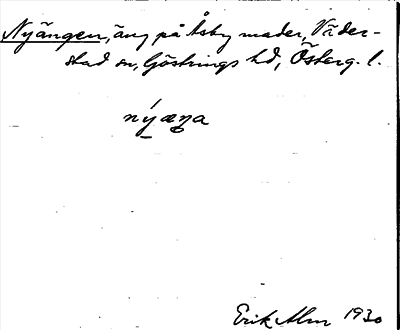 Nyängen, äng på Åsby mader, Väder-
stad sn, Göstrings hd, Österg. l.
nýæŋa
Erik Alm 1930